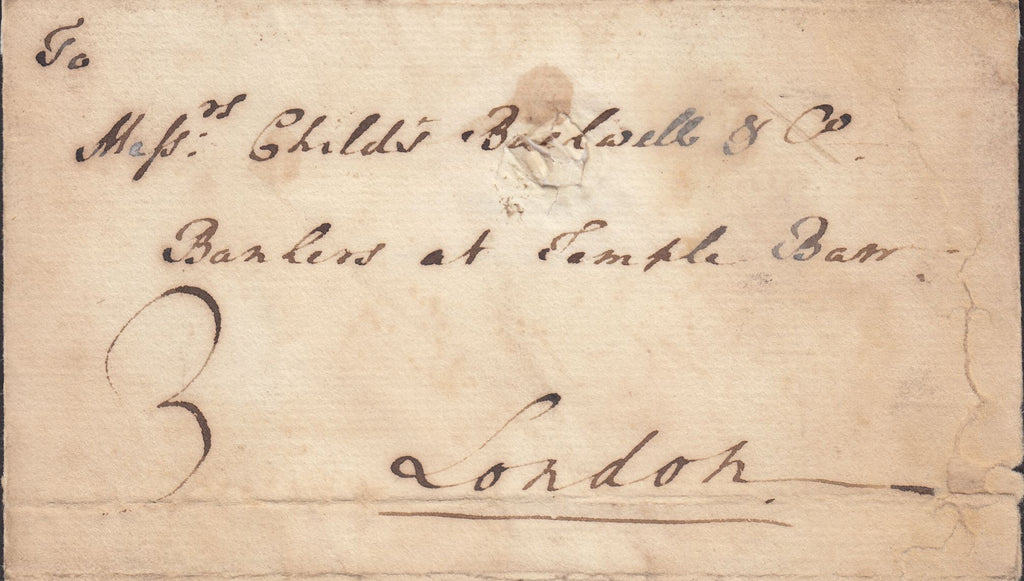 To
Messrs. Childs Backwell & Co.
Bankers at Temple Barr.
3
London.